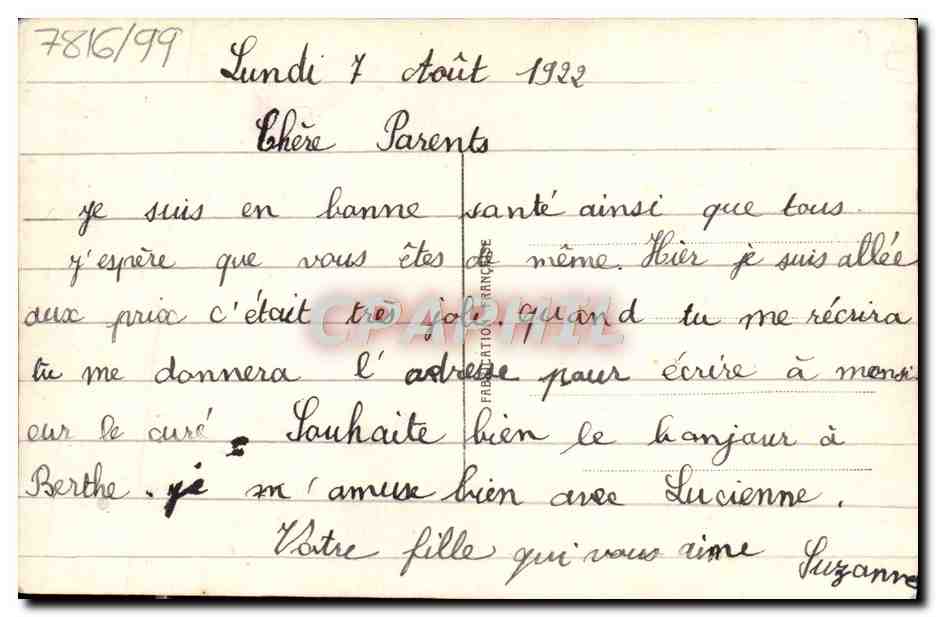 7816/99
Lundi 7 Août 1922
Chère Parents
je suis en banne santé ainsi que tous.
j'espère que vous êtes de même. Hier je suis allée
aux prix c'était très joli. quand tu me récrira
tu me donnera l'adresse pour écrire à monsi
eur le curé. Souhaite bien le banjaur à
Berthe. je m'amuse bien avec Lucienne.
Votre fille qui vous aime Suzanne
FABRICATION FRANÇAISE
CPAPHIL